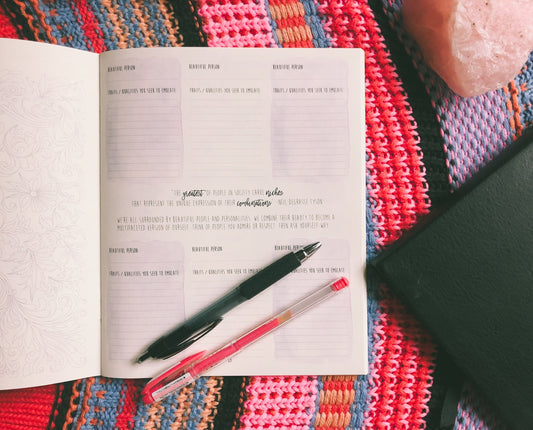 BEAUTIFUL PERSON BEAUTIFUL PERSON BEAUTIFUL PERSON
TRAITS / QUALITIES YOU SEEK TO EMULATE TRAITS / QUALITIES YOU SEEK TO EMULATE TRAITS / QUALITIES YOU SEEK TO EMULATE
"THE greatest OF PEOPLE IN SOCIETY CARVE niches
THAT REPRESENT THE UNIQUE EXPRESSION OF THEIR combinations" NEIL DEGRASSE TYSON
WE'RE ALL SURROUNDED BY BEAUTIFUL PEOPLE AND PERSONALITIES. WE COMBINE THEIR BEAUTY TO BECOME A
MULTIFACETED VERSION OF OURSELF. THINK OF PEOPLE YOU ADMIRE OR RESPECT THEN ASK YOURSELF WHY.
BEAUTIFUL PERSON BEAUTIFUL PERSON
TRAITS / QUALITIES YOU SEEK TO EMULATE TRAITS / QUALITIES YOU SEEK TO EMULATE TRAITS / QUALITIES YOU SEEK TO EMULATE